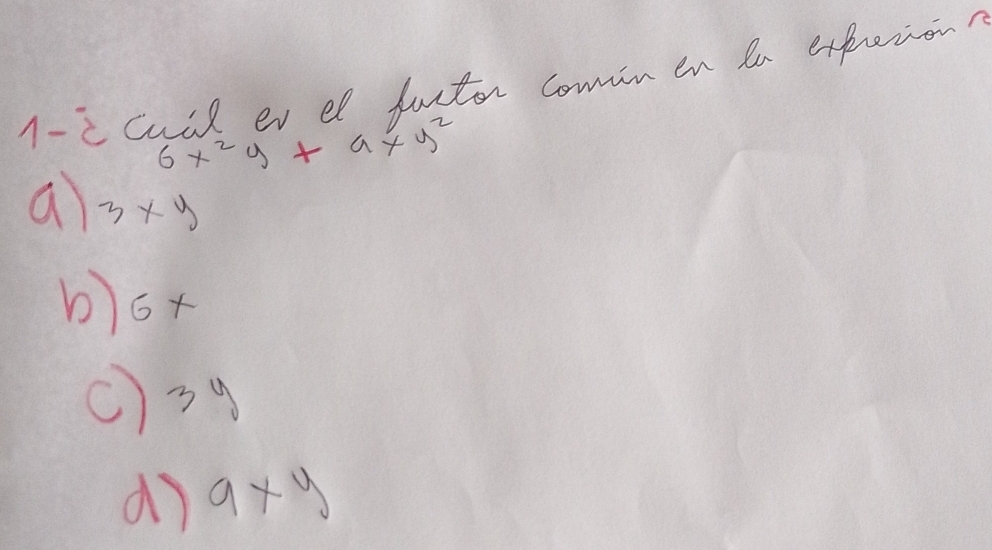 1-¿Cuál es el factor común en la expresión?
6x²y + 9xy²
a) 3xy
b) 6x
c) 3y
d) 9xy